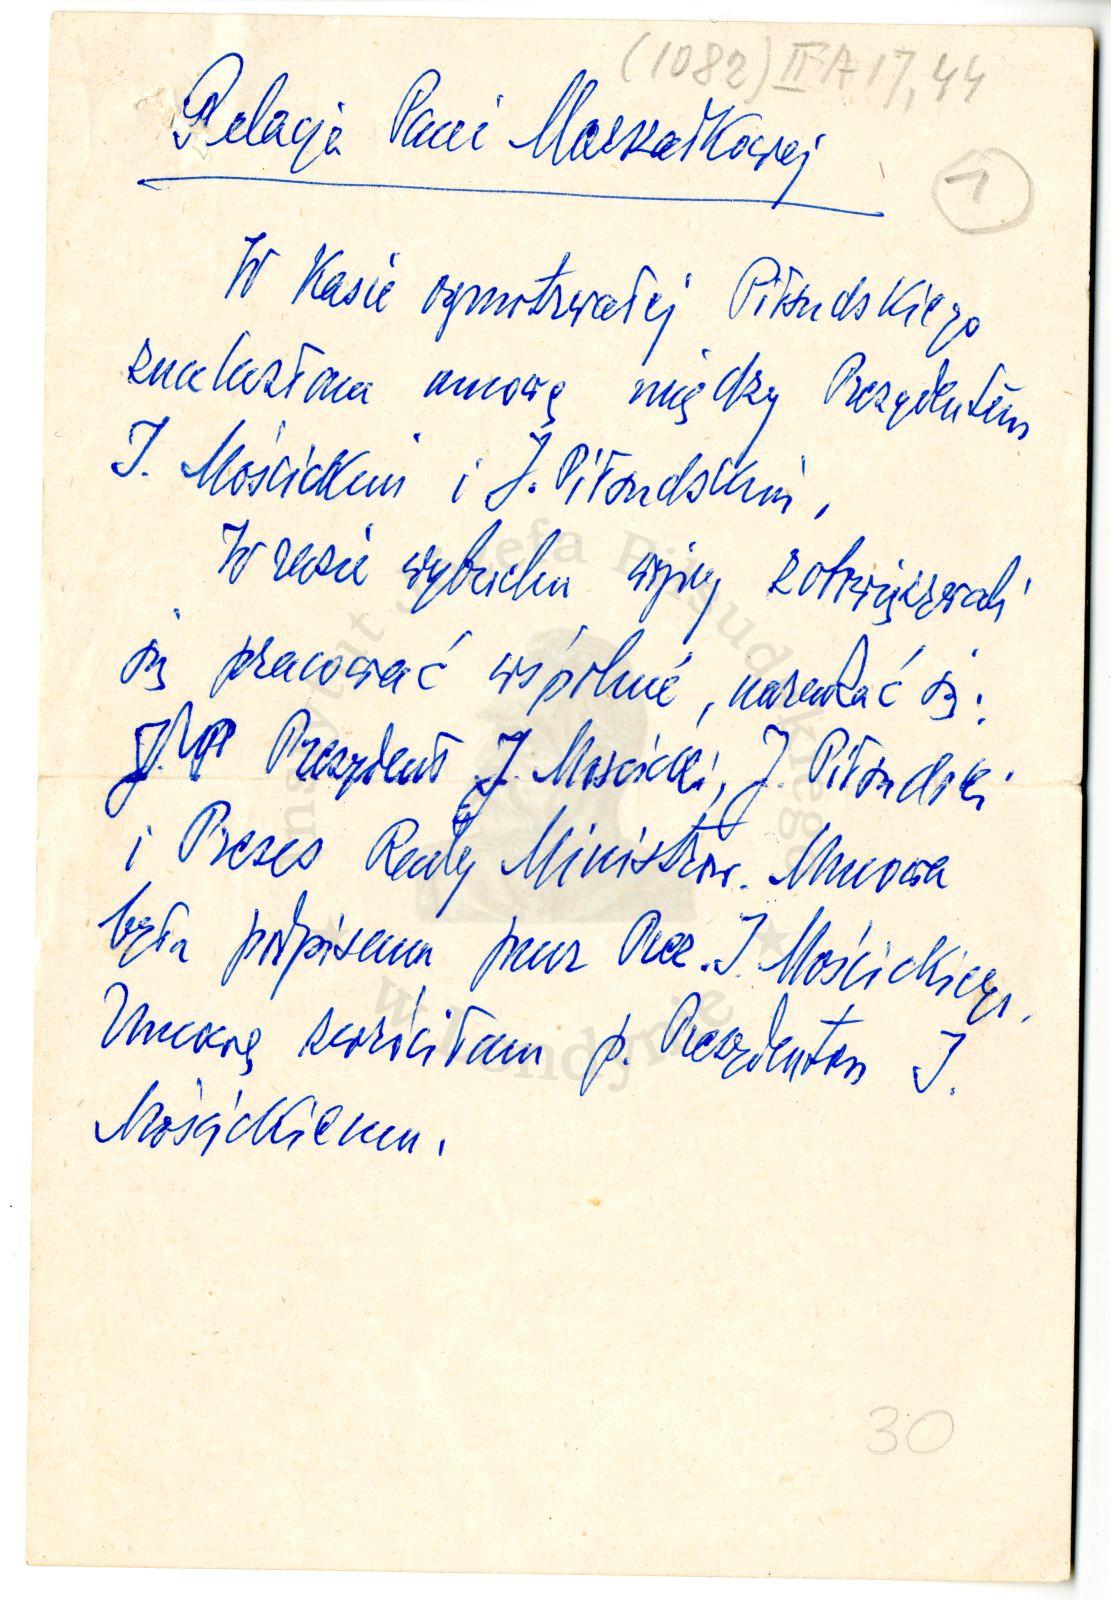 (1082) II A 17, 44
Relacja Pani Marszałkowej
1
W kasie ogniotrwałej Piłsudskiego
znalazłam umowę między Prezydentem
I. Mościckim i J. Piłsudskim.
W razie wybuchu wojny zobowiązywali
się pracować wspólnie, naradzać się:
Prezydent I. Mościcki, J. Piłsudski
i Prezes Rady Ministrów. Umowa
była podpisana przez Prez. I. Mościckiego.
Umowę zwróciłam p. Prezydentowi I.
Mościckiemu.
Instytut Józefa Piłsudskiego
w Londynie
30